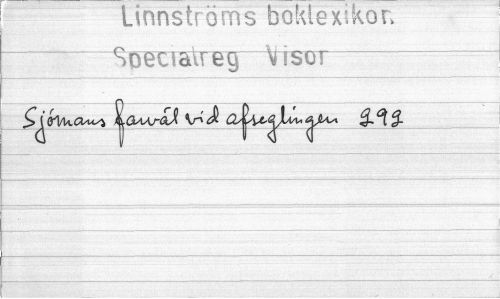 Linnströms boklexikon.
Specialreg Visor
Sjömans farväl vid afseglingen 292